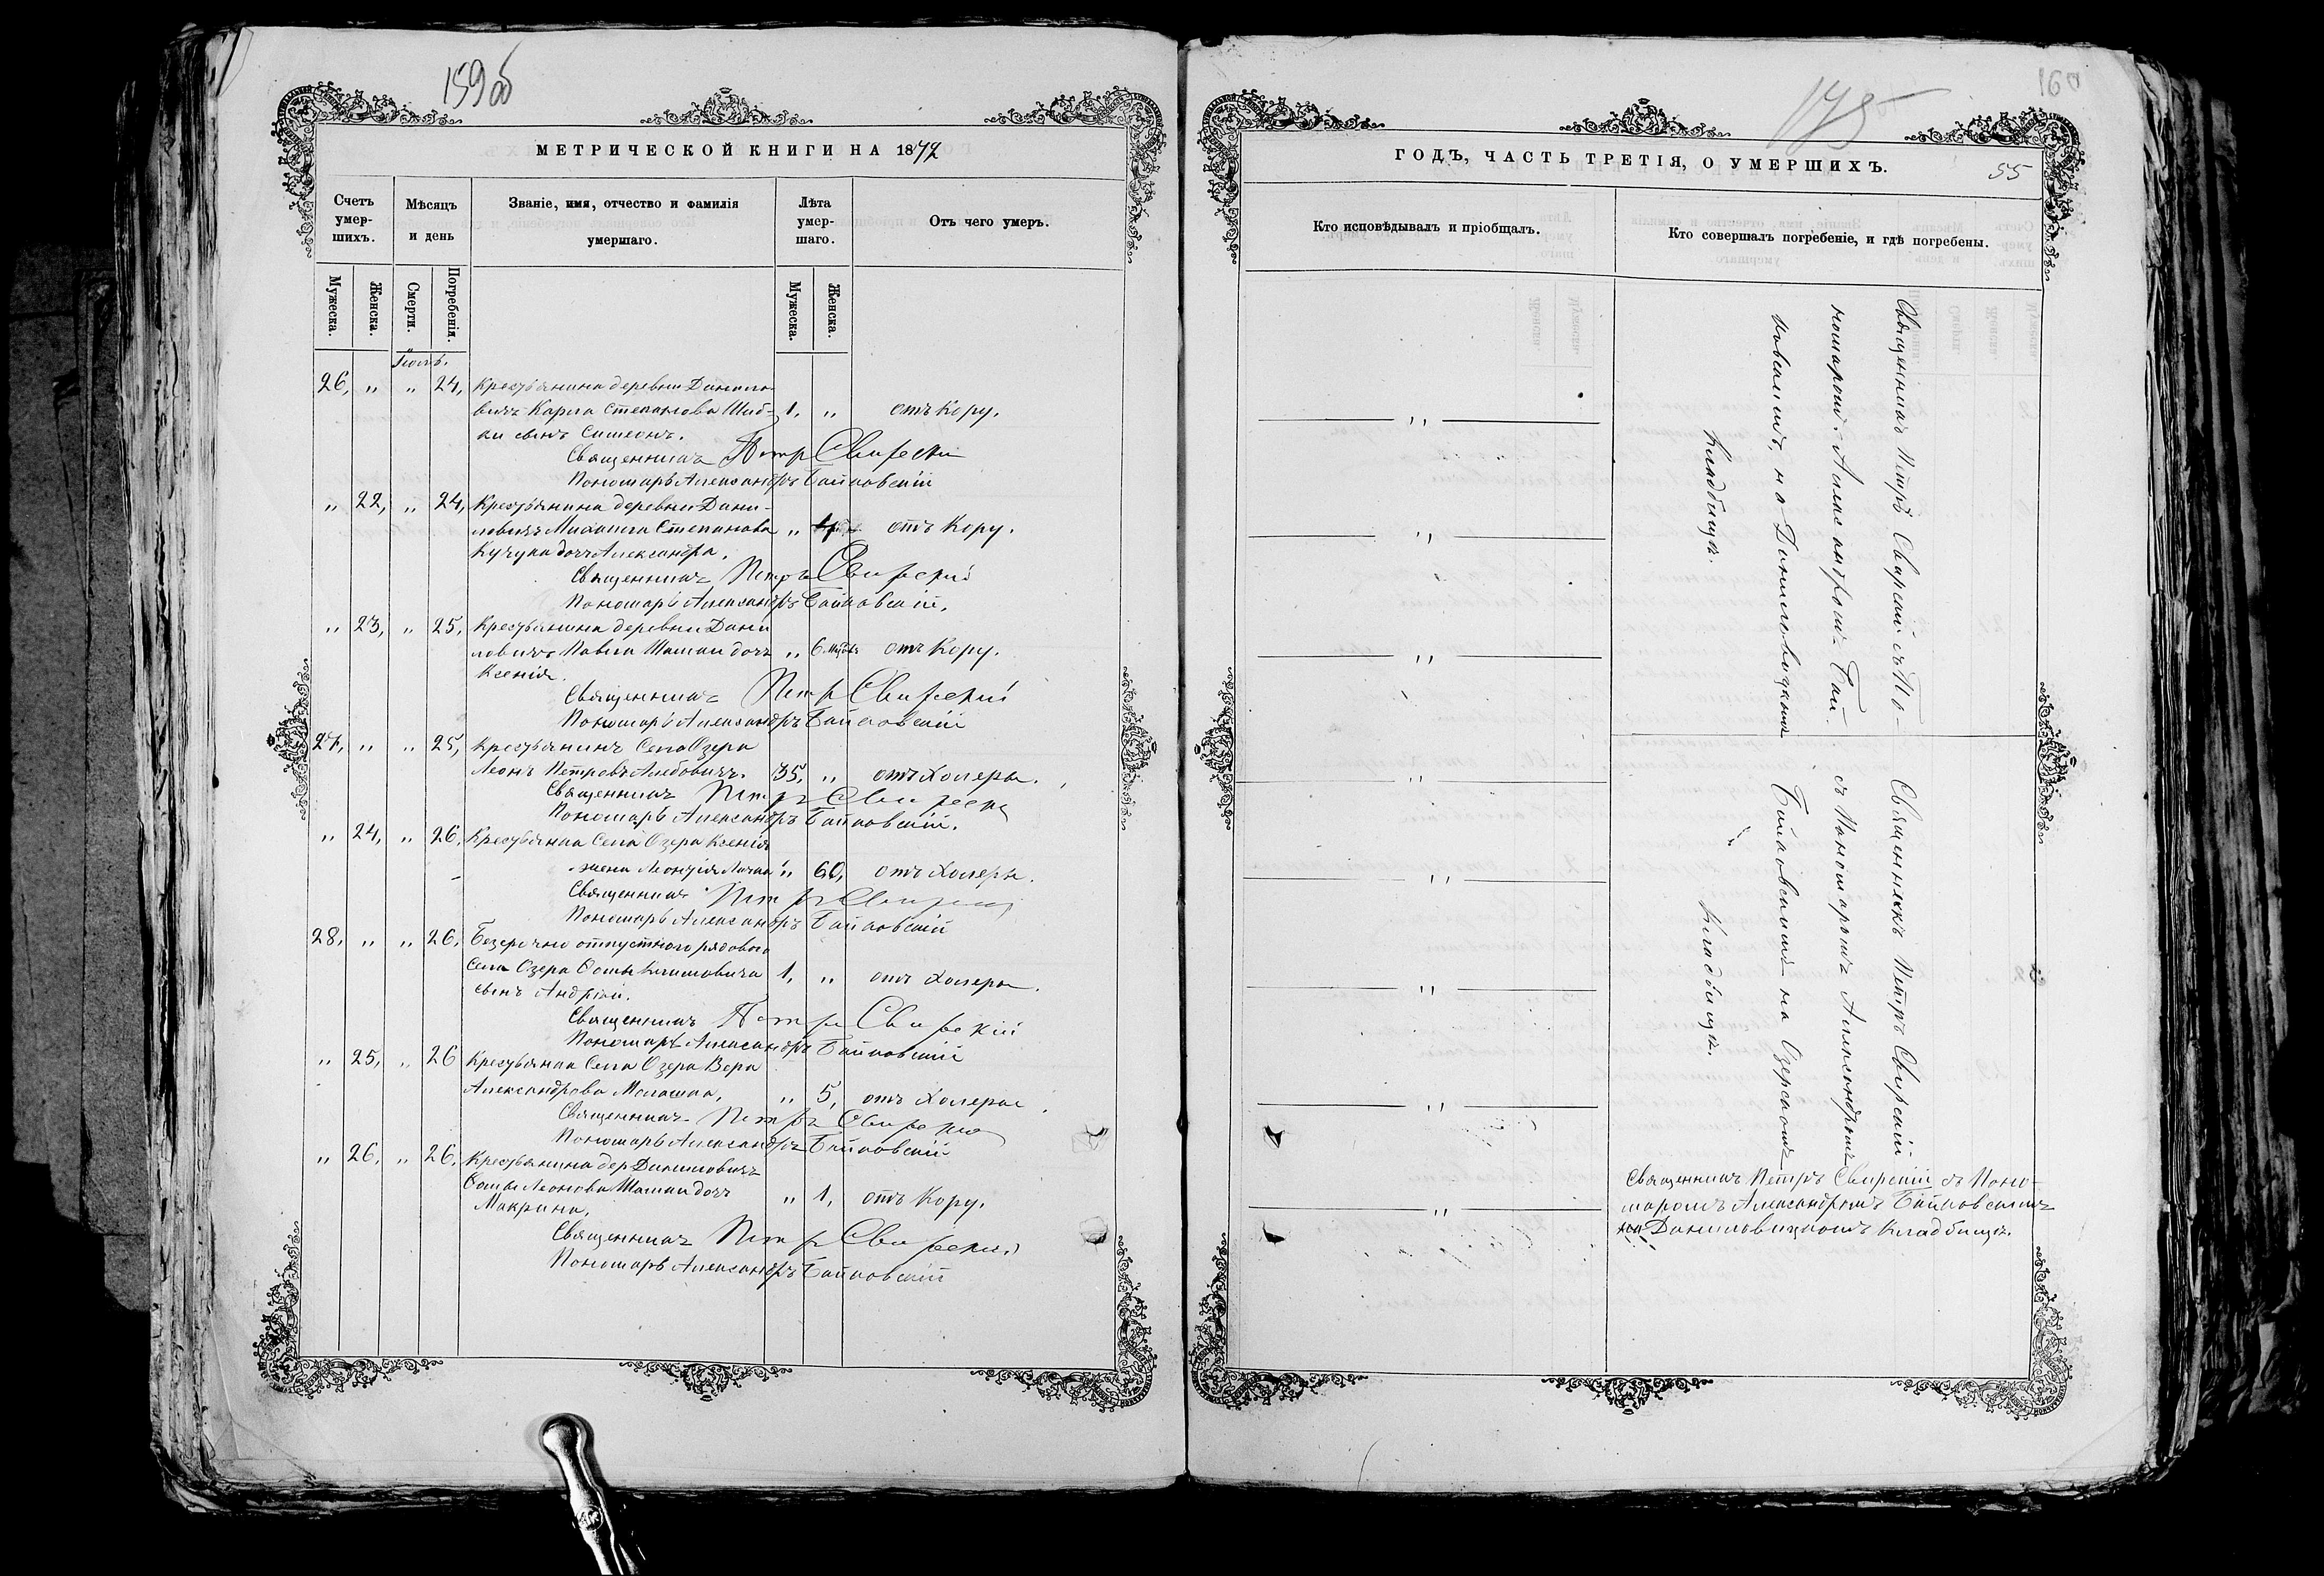 159об
МЕТРИЧЕСКОЙ КНИГИ НА 1872
Счетъ умер-шихъ.
Мѣсяцъ и день
Званіе, имя, отчество и фамилія умершаго.
Лѣта умер-шаго.
Отъ чего умеръ.
Мужеска.
Женска.
Смерти.
Погребенія.
Мужеска.
Женска.
26, " " 24, Крестьянина деревни Данило-
вичъ Карпа Степанова сынъ Симеонъ. 1, " отъ Кору.
Священникъ Петръ Свирскій
Пономарь Александръ Байковскій
" 22, " 24, Крестьянина деревни Дани-
ловичъ Михаила Степанова " 4 отъ Кору.
Кучука дочь Александра.
Священникъ Петръ Свирскій
Пономарь Александръ Байковскій.
" 23, " 25, Крестьянина деревни Дани
ловичъ Павла Шашки дочь " 6 мѣс отъ Кору.
Ксенія.
Священникъ Петръ Свирскій
Пономарь Александръ Байковскій
27, " " 25, Крестьянинъ Села Озера
Леонъ Петровъ 35, " отъ Холеры.
Священникъ Петръ Свирскій
Пономарь Александръ Байковскій.
" 24, " 26, Крестьянка Села Озера Ксенія
жена Леонтія " 60, отъ Холеры.
Священникъ Петръ Свирскій
Пономарь Александръ Байковскій
28, " " 26, Безсрочно отпустного рядового
Села Озера Фомы Климовича 1, " отъ Холеры.
сынъ Андрей.
Священникъ Петръ Свирскій
Пономарь Александръ Байковскій
" 25, " 26 Крестьянка Села Озера Вера
Александрова " 5, отъ Холеры.
Священникъ Петръ Свирскій
Пономарь Александръ Байковскій
" 26, " 26, Крестьянина дер Даниловичъ
Фомы Леонова Шашки дочь " 1, отъ Кору.
Макрина.
Священникъ Петръ Свирскій
Пономарь Александръ Байковскій
160
175
ГОДЪ, ЧАСТЬ ТРЕТІЯ, О УМЕРШИХЪ.
55
Кто исповѣдывалъ и пріобщалъ.
Кто совершалъ погребеніе, и гдѣ погребены.
"
"
"
"
"
"
"
"
Священникъ Петръ Свирскій съ По-
номаромъ Александромъ Бай-
ковскимъ, на Даниловицкомъ
кладбищѣ.
Священникъ Петръ Свирскій
съ Пономаромъ Александромъ
Байковскимъ на Озерскомъ
кладбищѣ.
Священникъ Петръ Свирскій съ Поно-
маромъ Александромъ Байковскимъ
на Даниловицкомъ Кладбищѣ.